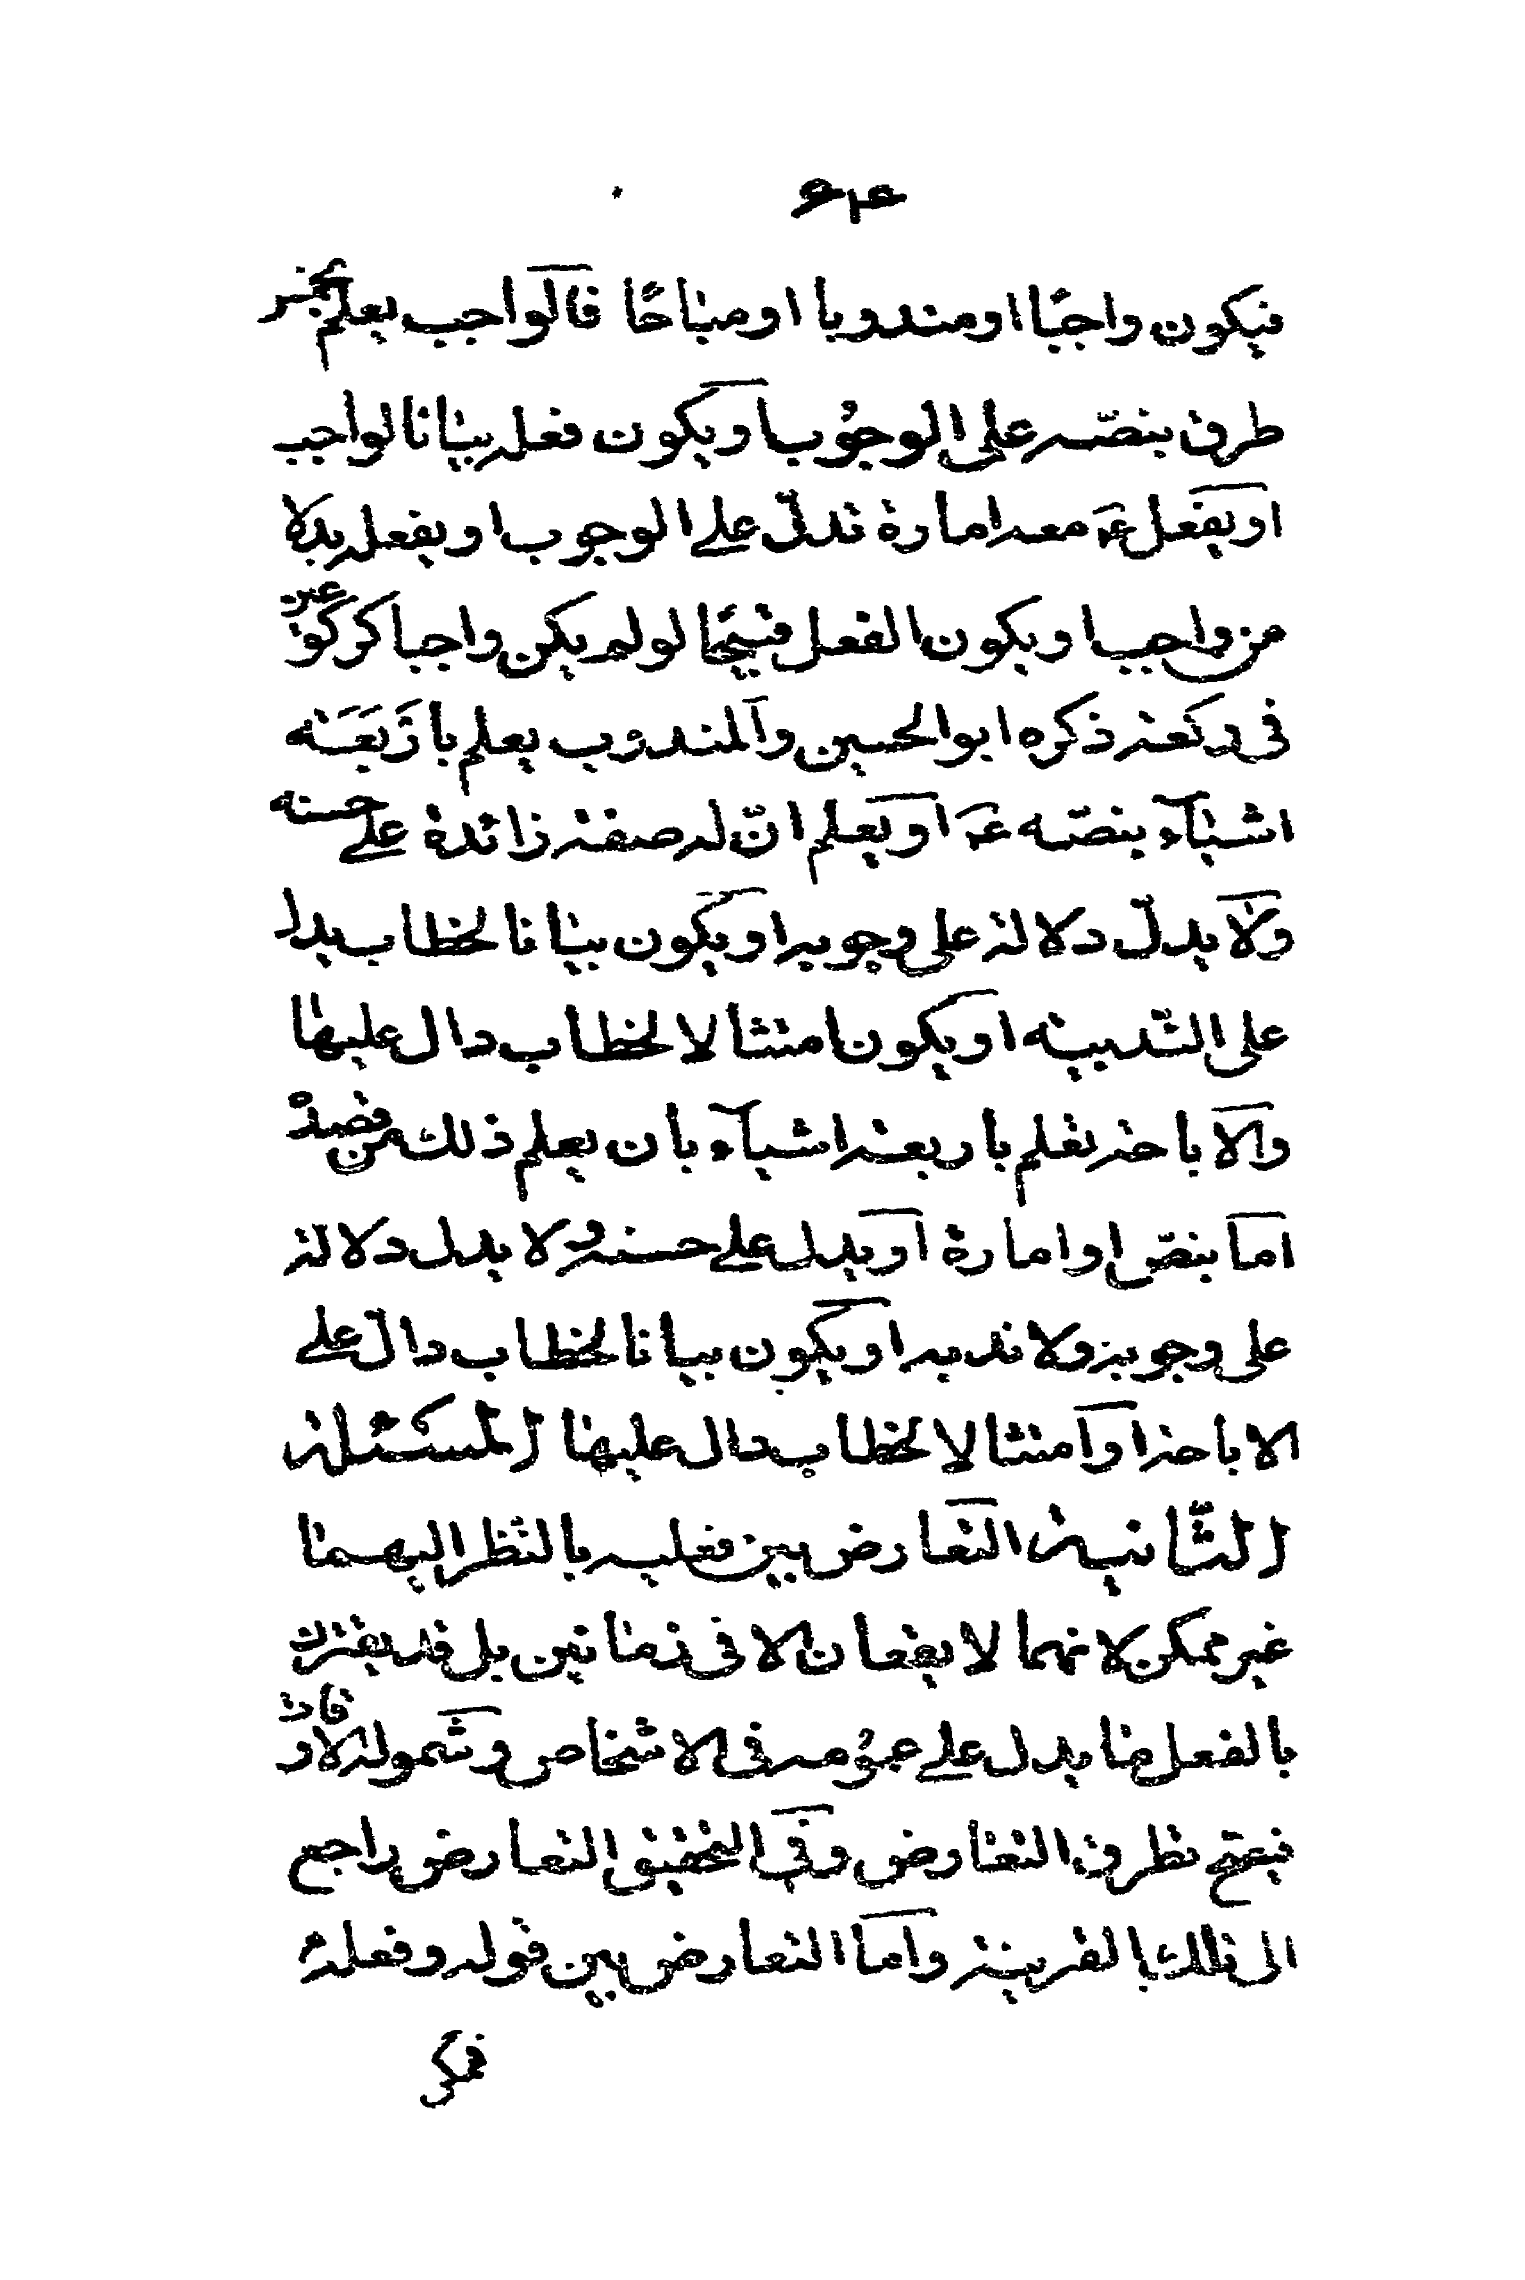 فيكون واجبًا او مندوبا او مباحًا فالواجب يعلم بخمس
طرق بنصّه على الوجوب او يكون فعله بيانا لواجب
او يفعل مع امارة تدلّ على الوجوب او يفعله بدلا
من واجب او يكون الفعل قبيحًا لو لم يكن واجبا كركوعين
فى ركعة ذكره ابو الحسين والمندوب يعلم باربعة
اشيآء بنصّه او يعلم انّ له صفة زائدة على حسنه
ولا يدلّ دلالة على وجوبه او يكون بيانا لخطاب يدل
على النّدبية او يكون امتثالا لخطاب دال عليها
والاباحة تعلم باربعة اشيآء بان يعلم ذلك من قصده
اما بنصّ او امارة او يدل على حسنه ولا يدل دلالة
على وجوبه ولا ندبه او يكون بيانا لخطاب دالّ على
الاباحة او امتثالا لخطاب دال عليها المسئلة
الثّانية التعارض بين فعليه بالنّظر اليهما
غير ممكن لانهما لا يقعان الا فى زمانين بل قد يقترن
بالفعل ما يدل على عمومه فى الاشخاص وشموله الاوقات
فيصح تطرق التعارض وفى التحقيق التعارض راجع
الى تلك القرينة واما التعارض بين قوله وفعله